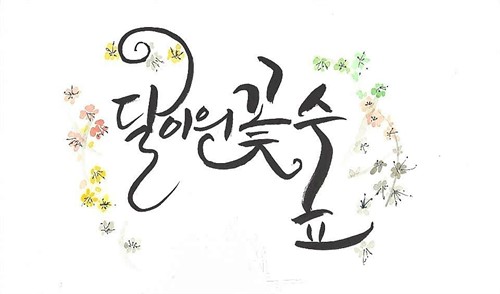 달이원꽃숲